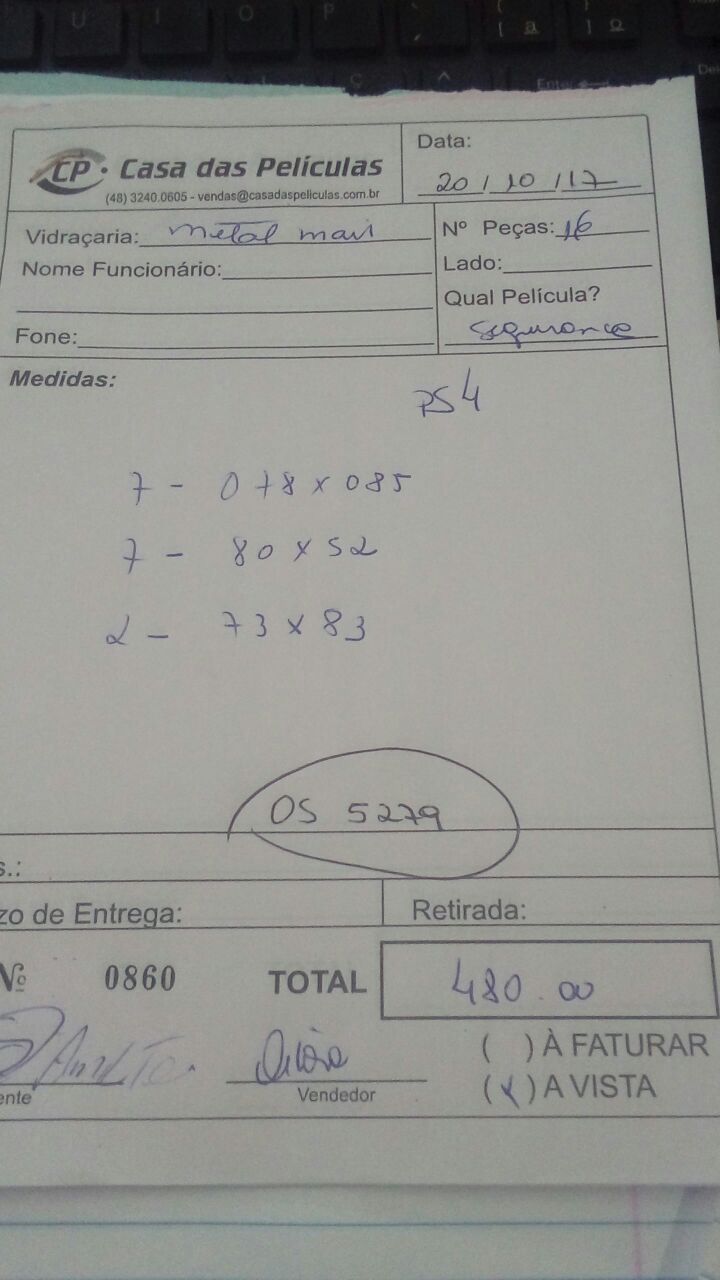 CP • Casa das Películas
(48) 3240.0605 - vendas@casadaspeliculas.com.br
Data:
20/10/17
Vidraçaria: metal mari
Nº Peças: 16
Nome Funcionário:
Lado:
Qual Película?
Fone:
segurance
Medidas:
PS4
7 - 078 x 085
7 - 80 x 52
2 - 73 x 83
OS 5279
s.:
zo de Entrega:
Retirada:
Nº 0860
TOTAL
480.00
( ) À FATURAR
(x) A VISTA
ente
Vendedor